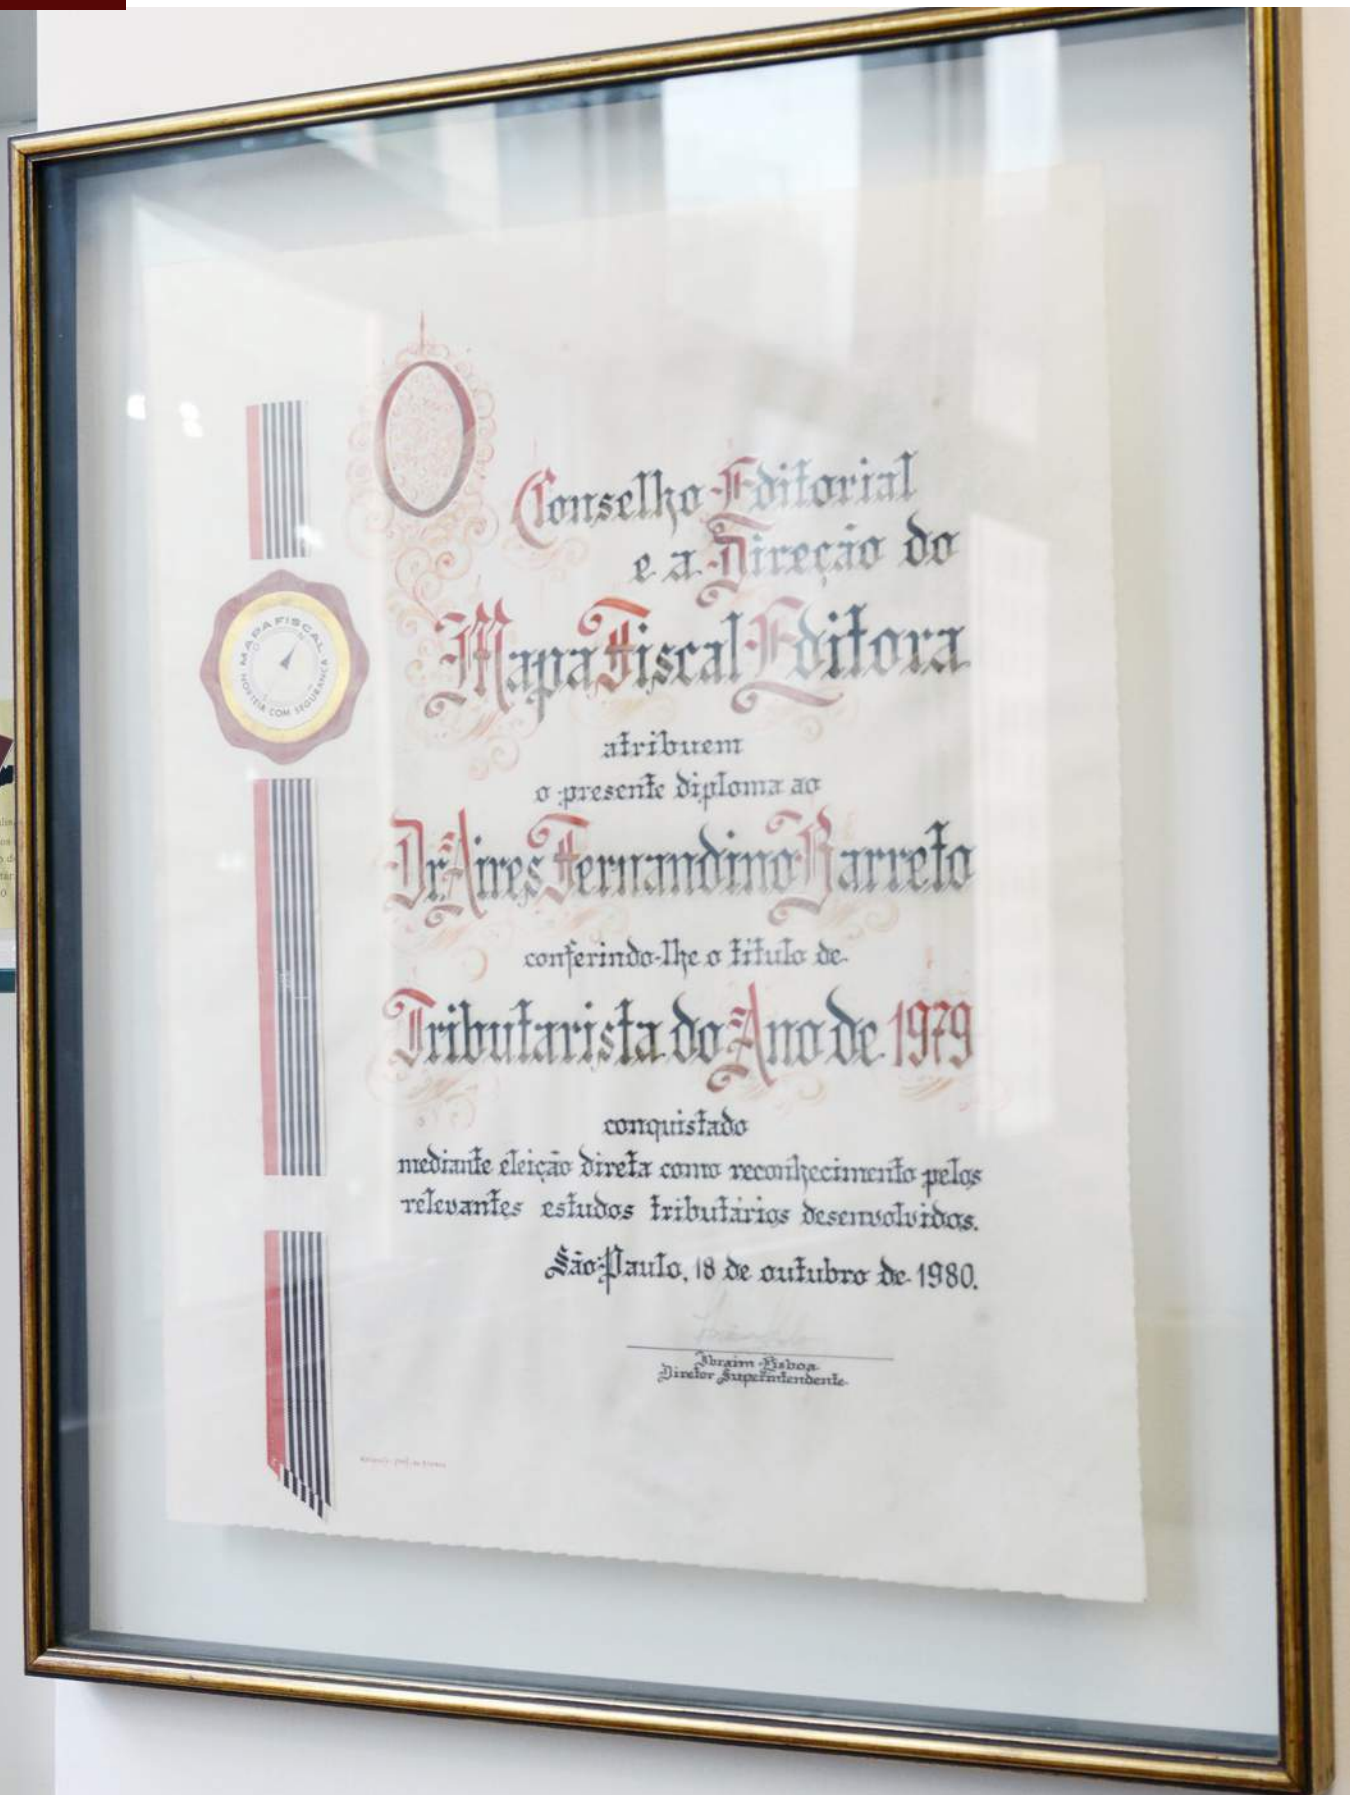 O
Conselho Editorial
e a Direção do
Mapa Fiscal Editora
atribuem
o presente diploma ao
Dr. Aires Fernandino Barreto
conferindo-lhe o título de
Tributarista do Ano de 1979
conquistado
mediante eleição direta como reconhecimento pelos
relevantes estudos tributários desenvolvidos.
São Paulo, 18 de outubro de 1980.
Ibraim Lisboa
Diretor Superintendente
MAPA FISCAL
NORTEIA COM SEGURANÇA